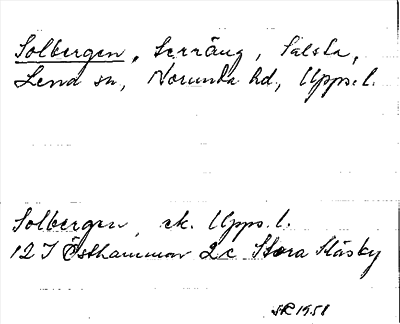 Solbergen, Serräng, Salsta,
Lena sn, Norunda hd, Upps.l.
Solbergen, ek. Upps.l.
12 I Östhammar 2c Stora Släsby
SR 1951